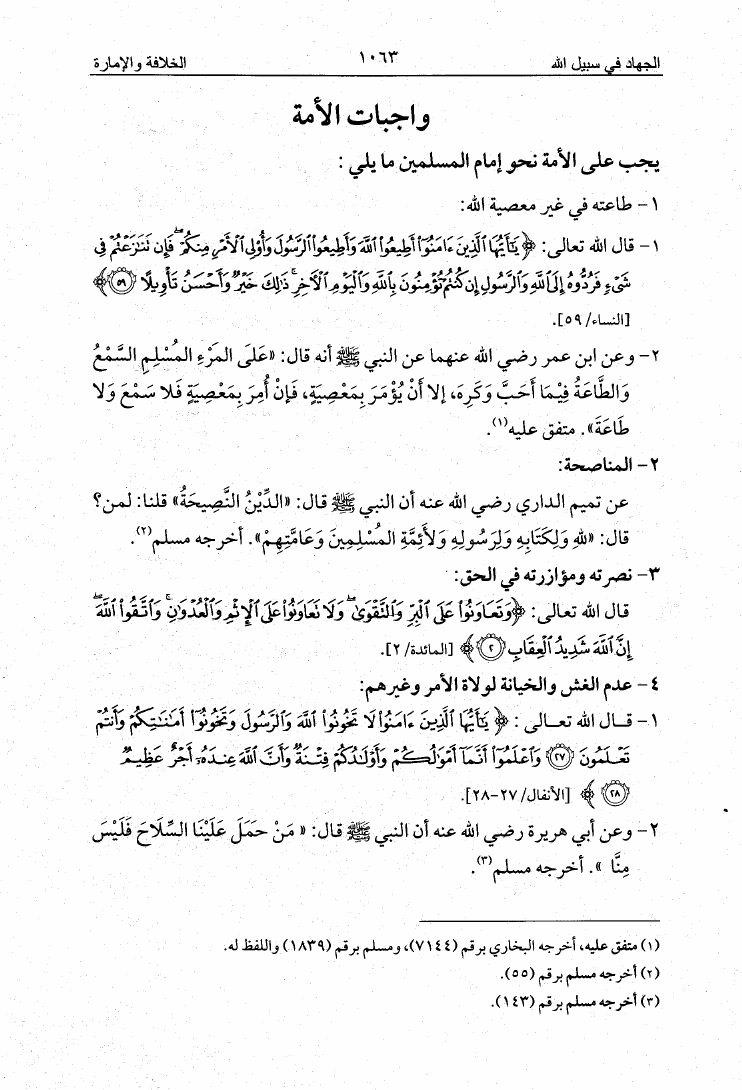 الجهاد في سبيل الله ١٠٦٣ الخلافة والإمارة
واجبات الأمة
يجب على الأمة نحو إمام المسلمين ما يلي :
١- طاعته في غير معصية الله:
١- قال الله تعالى: ﴿ يَٰٓأَيُّهَا ٱلَّذِينَ ءَامَنُوٓا۟ أَطِيعُوا۟ ٱللَّهَ وَأَطِيعُوا۟ ٱلرَّسُولَ وَأُو۟لِى ٱلْأَمْرِ مِنكُمْ ۖ فَإِن تَنَٰزَعْتُمْ فِى
شَىْءٍ فَرُدُّوهُ إِلَى ٱللَّهِ وَٱلرَّسُولِ إِن كُنتُمْ تُؤْمِنُونَ بِٱللَّهِ وَٱلْيَوْمِ ٱلْءَاخِرِ ۚ ذَٰلِكَ خَيْرٌ وَأَحْسَنُ تَأْوِيلًا ٥٩ ﴾
[النساء/ ٥٩].
٢- وعن ابن عمر رضي الله عنهما عن النبي ﷺ أنه قال: «عَلَى المَرْءِ المُسْلِمِ السَّمْعُ
وَالطَّاعَةُ فِيْمَا أَحَبَّ وَكَرِهَ، إلا أَنْ يُؤْمَرَ بِمَعْصِيَةٍ، فَإنْ أُمِرَ بِمَعْصِيَةٍ فَلا سَمْعَ وَلا
طَاعَةَ». متفق عليه(١).
٢- المناصحة:
عن تميم الداري رضي الله عنه أن النبي ﷺ قال: «الدِّيْنُ النَّصِيحَةُ» قلنا: لمن؟
قال: «للهِ وَلِكِتَابِهِ وَلِرَسُولِهِ وَلأَئِمَّةِ المُسْلِمِينَ وَعَامَّتِهِمْ». أخرجه مسلم(٢).
٣- نصرته ومؤازرته في الحق:
قال الله تعالى: ﴿وَتَعَاوَنُوا۟ عَلَى ٱلْبِرِّ وَٱلتَّقْوَىٰ ۖ وَلَا تَعَاوَنُوا۟ عَلَى ٱلْإِثْمِ وَٱلْعُدْوَٰنِ ۚ وَٱتَّقُوا۟ ٱللَّهَ ۖ
إِنَّ ٱللَّهَ شَدِيدُ ٱلْعِقَابِ ٢ ﴾ [المائدة/ ٢].
٤- عدم الغش والخيانة لولاة الأمر وغيرهم:
١- قال الله تعالى : ﴿ يَٰٓأَيُّهَا ٱلَّذِينَ ءَامَنُوا۟ لَا تَخُونُوا۟ ٱللَّهَ وَٱلرَّسُولَ وَتَخُونُوٓا۟ أَمَٰنَٰتِكُمْ وَأَنتُمْ
تَعْلَمُونَ ٢٧ وَٱعْلَمُوٓا۟ أَنَّمَآ أَمْوَٰلُكُمْ وَأَوْلَٰدُكُمْ فِتْنَةٌ وَأَنَّ ٱللَّهَ عِندَهُۥٓ أَجْرٌ عَظِيمٌ
٢٨ ﴾ [الأنفال/ ٢٧-٢٨].
٢- وعن أبي هريرة رضي الله عنه أن النبي ﷺ قال: « مَنْ حَمَلَ عَلَيْنَا السِّلَاحَ فَلَيْسَ
مِنَّا ». أخرجه مسلم(٣).
(١) متفق عليه، أخرجه البخاري برقم (٧١٤٤)، ومسلم برقم (١٨٣٩) واللفظ له.
(٢) أخرجه مسلم برقم (٥٥).
(٣) أخرجه مسلم برقم (١٤٣).